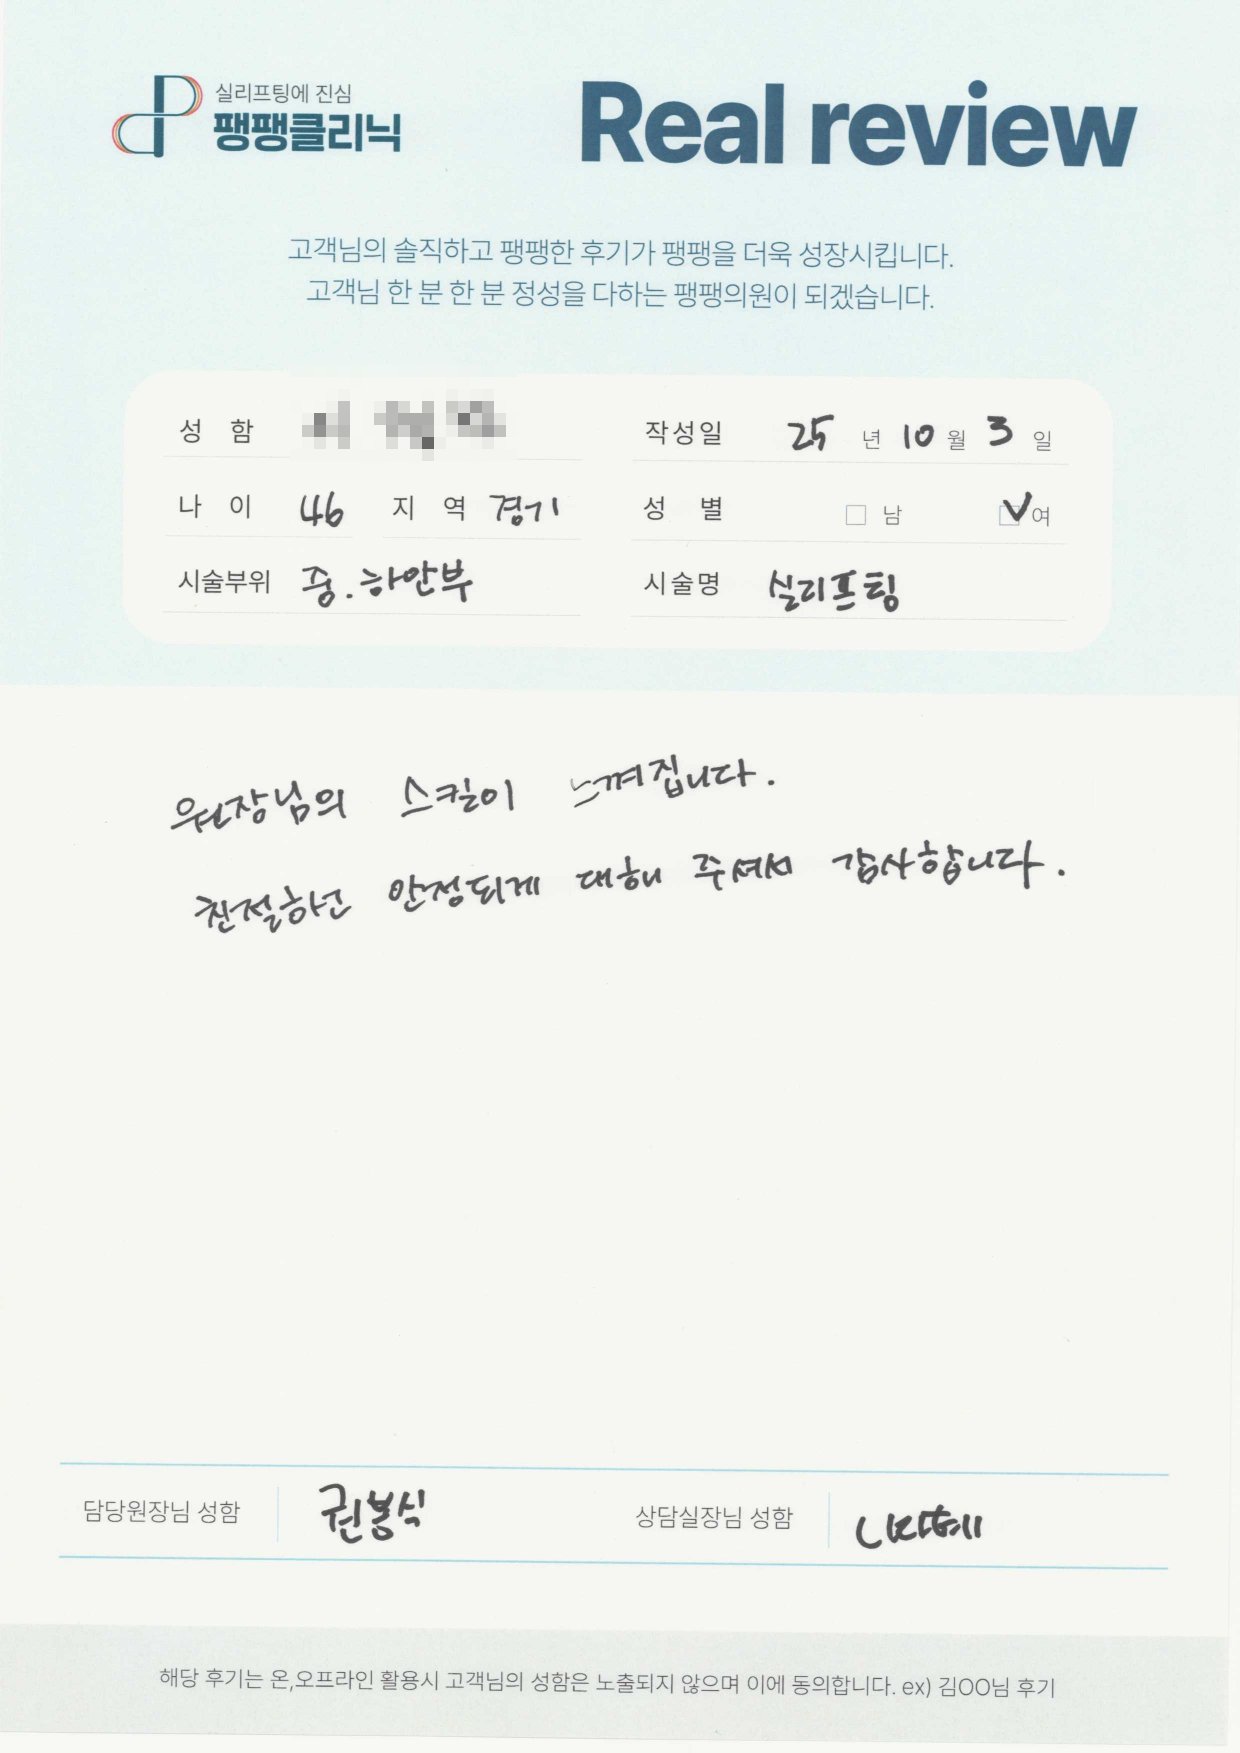 실리프팅에 진심
팽팽클리닉
Real review
고객님의 솔직하고 팽팽한 후기가 팽팽을 더욱 성장시킵니다.
고객님 한 분 한 분 정성을 다하는 팽팽의원이 되겠습니다.
성 함 작성일 25 년 10 월 3 일
나 이 46 지 역 경기 성 별 남 여
시술부위 중.하안부 시술명 실리프팅
원장님의 스킬이 느껴집니다.
친절하고 안정되게 대해 주셔서 감사합니다.
담당원장님 성함 권봉식 상담실장님 성함
해당 후기는 온,오프라인 활용시 고객님의 성함은 노출되지 않으며 이에 동의합니다. ex) 김OO님 후기